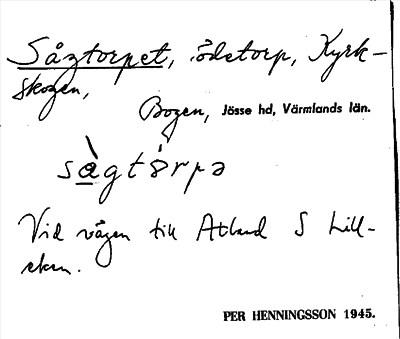 Sågtorpet, ödetorp, Kyrk-
skogen,
Bogen, Jösse hd, Värmlands län.
sàgtórpə
Vid vägen till Åtland S Lill-
ekan.
PER HENNINGSSON 1945.